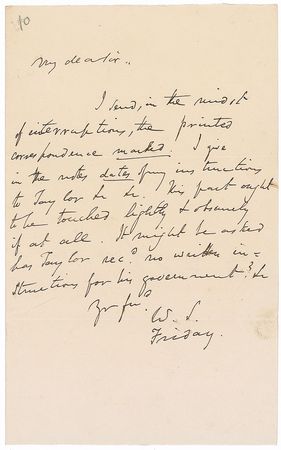 10
My dear Sir,
I send, in the midst
of interruptions, the printed
correspondence marked. I give
in the notes dates of my instructions
to Taylor &c &c. This part ought
to be touched lightly & obscurely
if at all. It might be asked
has Taylor recd no written in-
structions for his government? &c
Yr frd
W. S.
Friday.